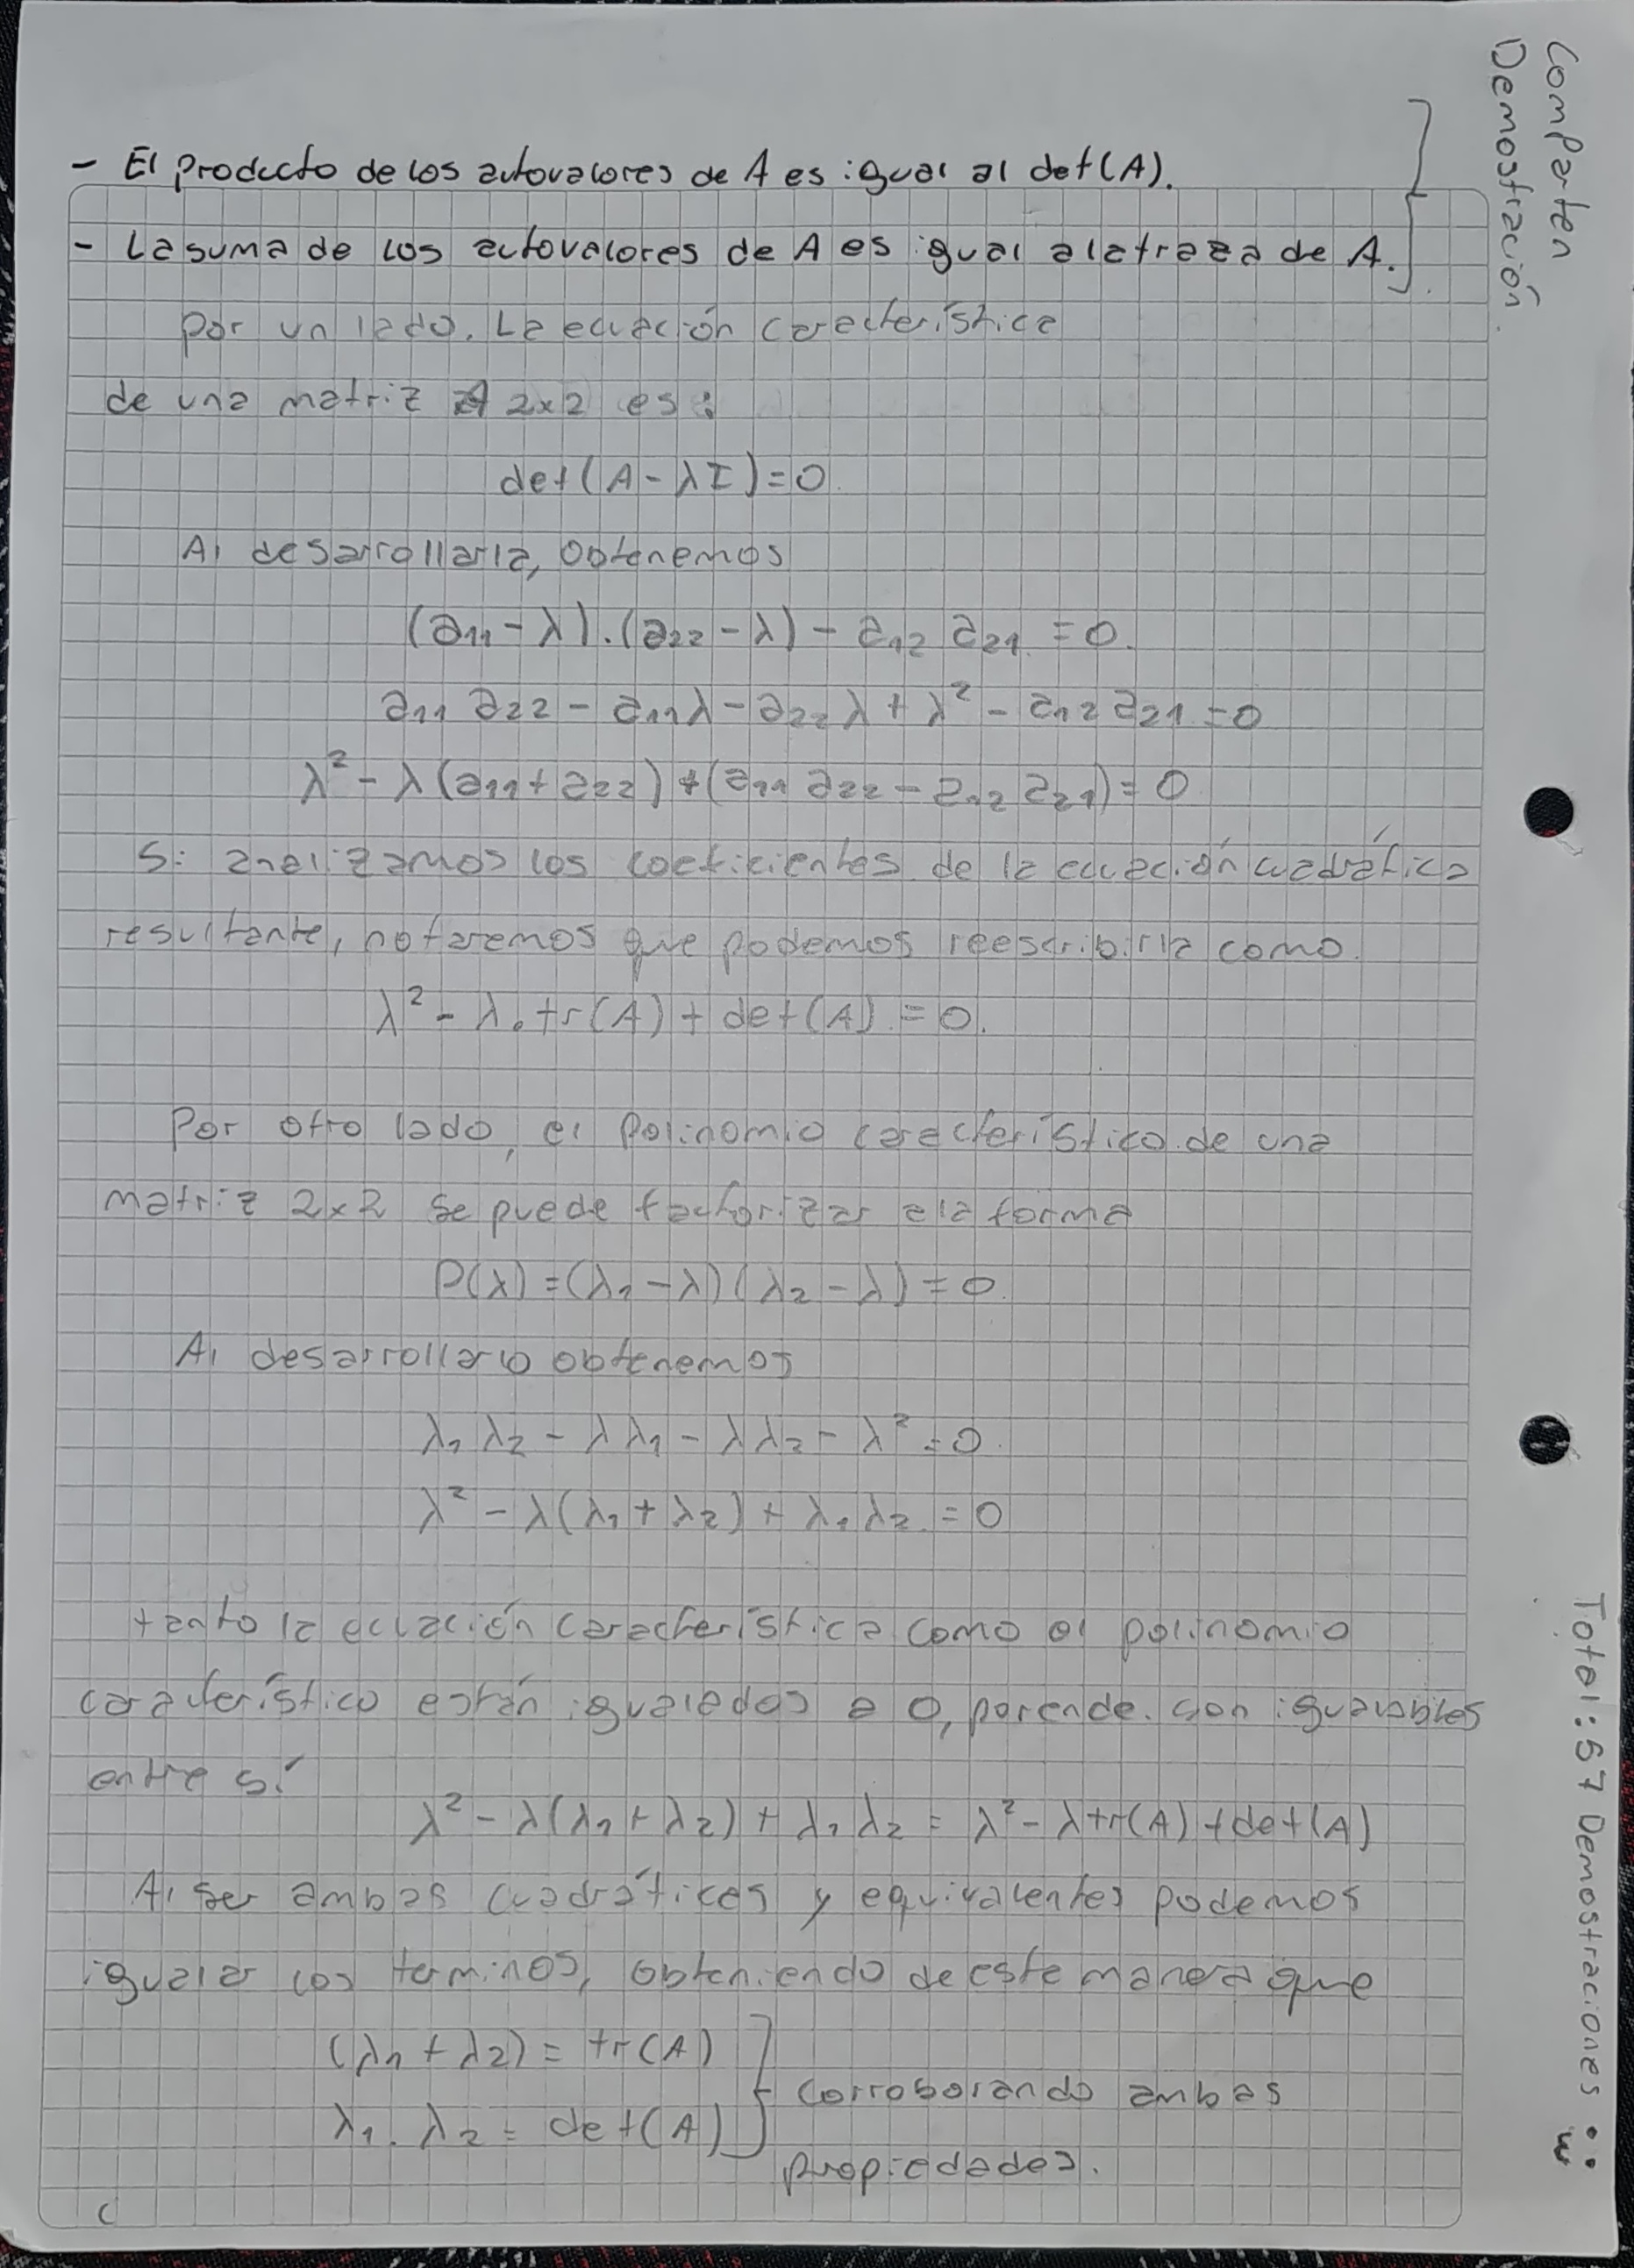 - El producto de los autovalores de A es igual al det(A).
- La suma de los autovalores de A es igual a la traza de A.
Comparten
Demostración.
Por un lado. La ecuación característica
de una matriz A 2x2 es:
det(A - λI) = 0.
Al desarrollarla, obtenemos
(a₁₁ - λ).(a₂₂ - λ) - a₁₂ a₂₁ = 0.
a₁₁ a₂₂ - a₁₁λ - a₂₂λ + λ² - a₁₂ a₂₁ = 0
λ² - λ(a₁₁ + a₂₂) + (a₁₁ a₂₂ - a₁₂ a₂₁) = 0
Si analizamos los coeficientes de la ecuación cuadrática
resultante, notaremos que podemos reescribirla como
λ² - λ.tr(A) + det(A) = 0.
Por otro lado, el polinomio característico de una
matriz 2x2 se puede factorizar a la forma
P(λ) = (λ₁ - λ)(λ₂ - λ) = 0.
Al desarrollarlo obtenemos
λ₁ λ₂ - λ λ₁ - λ λ₂ - λ² = 0.
λ² - λ(λ₁ + λ₂) + λ₁ λ₂ = 0
tanto la ecuación característica como el polinomio
característico están igualados a 0, por ende. son igualables
entre sí
λ² - λ(λ₁ + λ₂) + λ₁ λ₂ = λ² - λ tr(A) + det(A)
Al ser ambas cuadráticas y equivalentes podemos
igualar los terminos, obteniendo de este manera que
(λ₁ + λ₂) = tr(A)
λ₁ . λ₂ = det(A)
corroborando ambas
propiedades.
Total: 57 Demostraciones :3